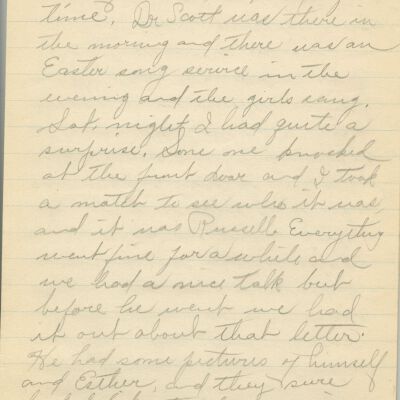 time. Dr Scott was there in
the morning and there was an
Easter song service in the
evening and the girls sang.
Sat. night I had quite a
surprise. Some one knocked
at the front door and I took
a match to see who it was
and it was Russell. Everything
went fine for a while and
we had a nice talk but
before he went we had
it out about that letter.
He had some pictures of himself
and Esther, and they sure